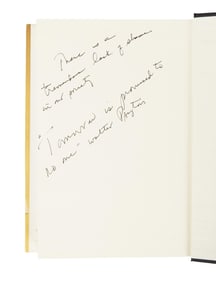 There is a
tremendous lack of shame
in our society
"Tomorrow is promised to
no one" - Walter Payton